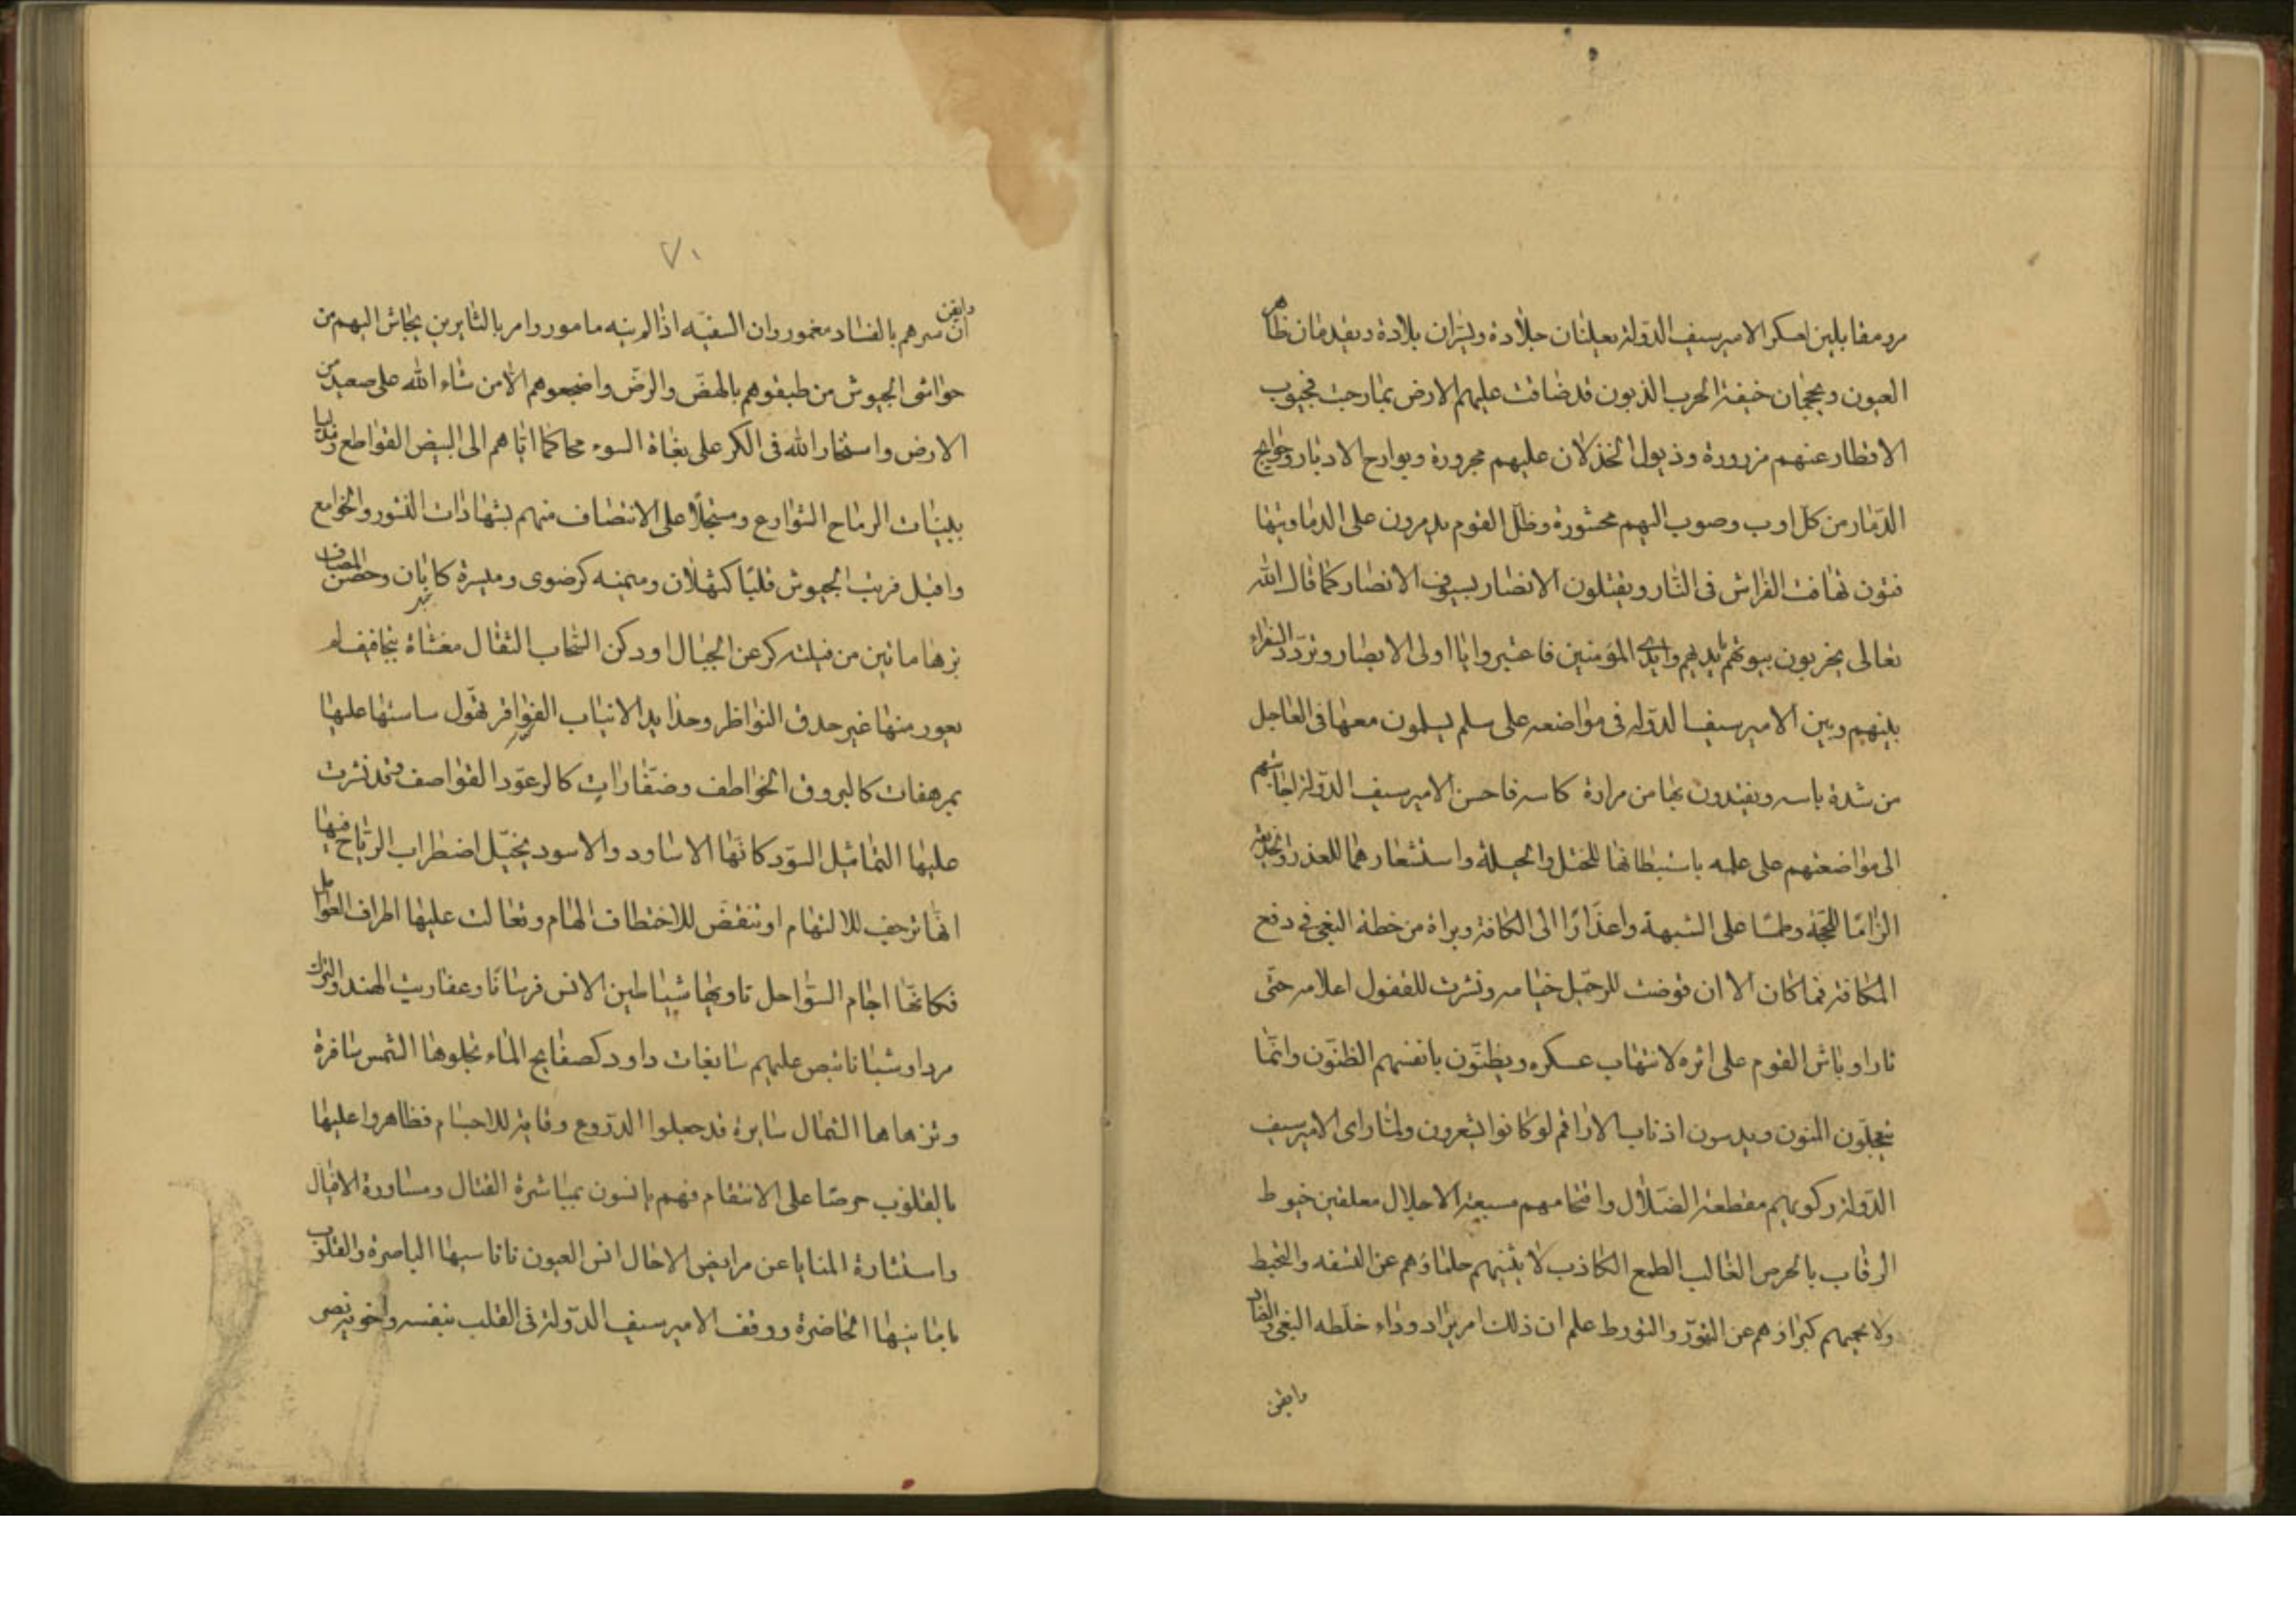 مرو مقابلين لعسكر الامير سيف الدولة يعلنان جلادة ويسران بلادة ويقدمان ظاهر
العيون ويحجمان خيفة الحرب الزبون قد ضاقت عليهم الارض بما رحبت فجيوب
الاقطار عنهم مزرورة وذيول الخذلان عليهم مجرورة وبوارح الادبار وجوايح
الدمار من كل اوب وصوب اليهم محشورة وظل القوم يدمرون على الدما ويتها
فتون تهافت الفراش فى النار ويقتلون الانصار بسيوف الانصار كما قال الله
تعالى يخربون بيوتهم بايديهم وايدى المؤمنين فاعتبروا يا اولى الابصار وتردد السفراء
بينهم وبين الامير سيف الدوله فى مواضعه على سلم يسلمون معها فى العاجل
من شدة باسه ويفتدون بها من مرارة كاسه فاحسن الامير سيف الدولة اجابتهم
الى مواضعتهم على علمه باستبطانها للختل والحيلة واستشعارهما للغدر والخديعة
الزاما للحجة وطمسا على الشبهة واعذارا الى الكافة وبراة من خطة البغى فى دفع
المكافة فما كان الا ان قوضت للرحيل خيامه ونشرت للقفول اعلامه حتى
ثار اوباش القوم على اثره لانتهاب عسكره ويظنون بانفسهم الظنون وانما
يتعجلون المنون ويدوسون اذناب الاراقم لو كانوا يشعرون ولما راى الامير سيف
الدولة ركوبهم مقطعة الضلال واقتحامهم مسبعة الاحلال معلقين خيوط
الرقاب بالحرص الغالب الطمع الكاذب لا يثنيهم حلماؤهم عن السفه والتخبط
ولا يحميهم كبراؤهم عن التهور والتورط علم ان ذلك امر يراد وداء خلطه البغى والفساد
وايقن
٧١
وايقن ان سرهم بالفساد مغمور وان السفيه اذا لم ينه مامور وامر بالثايرين فجاش اليهم من
حواشى الجيوش من طبقوهم بالهض والرض واضجعوهم الا من شاء الله على صعيد من
الارض واستخار الله فى الكر على بغاة السوء محاكما اياهم الى البيض القواطع ومدليا
ببينات الرماح الشوارع ومسجلا على الانتصاف منهم بشهادات النسور والخوامع
واقبل فرتب الجيوش قلبا كثهلان وميمنه كرضوى وميسرة كابان وحصن المصاف
بزها ماتين من فيلة كرعن الجبال او دكن السحاب الثقال مغشاة بتجافيف لم
يعور منها غير حدق النواظر وحدايد الانياب الفواقر تهول ساستها عليها
بمرهفات كالبروق الخواطف وصفارات كالرعود القواصف وقد نشرت
عليها التماثيل السود كانها الاساود والاسود يخيل اضطراب الرياح فيها
انها تزحف للالتهام او تنقض للاختطاف الهام وتعالت عليها اطراف العوامل
فكانها اجام السواحل تاويها شياطين الانس فرسانا وعفاريت الهند والترك
مردا وشبانا تبص عليهم سابغات داود كصفايح الماء تجلوها الشمس سافرة
وتزهاها الشمال سايرة قد جعلوا الدروع وقاية للاجسام فظاهروا عليها
بالقلوب حرصا على الانتقام فهم يانسون بمباشرة القتال ومساورة الاقيال
واستثارة المنايا عن مرابض الاجال انس العيون باناسيها الباصرة والقلوب
بامانيها الحاضرة ووقف الامير سيف الدولة فى القلب بنفسه واخويه نصر